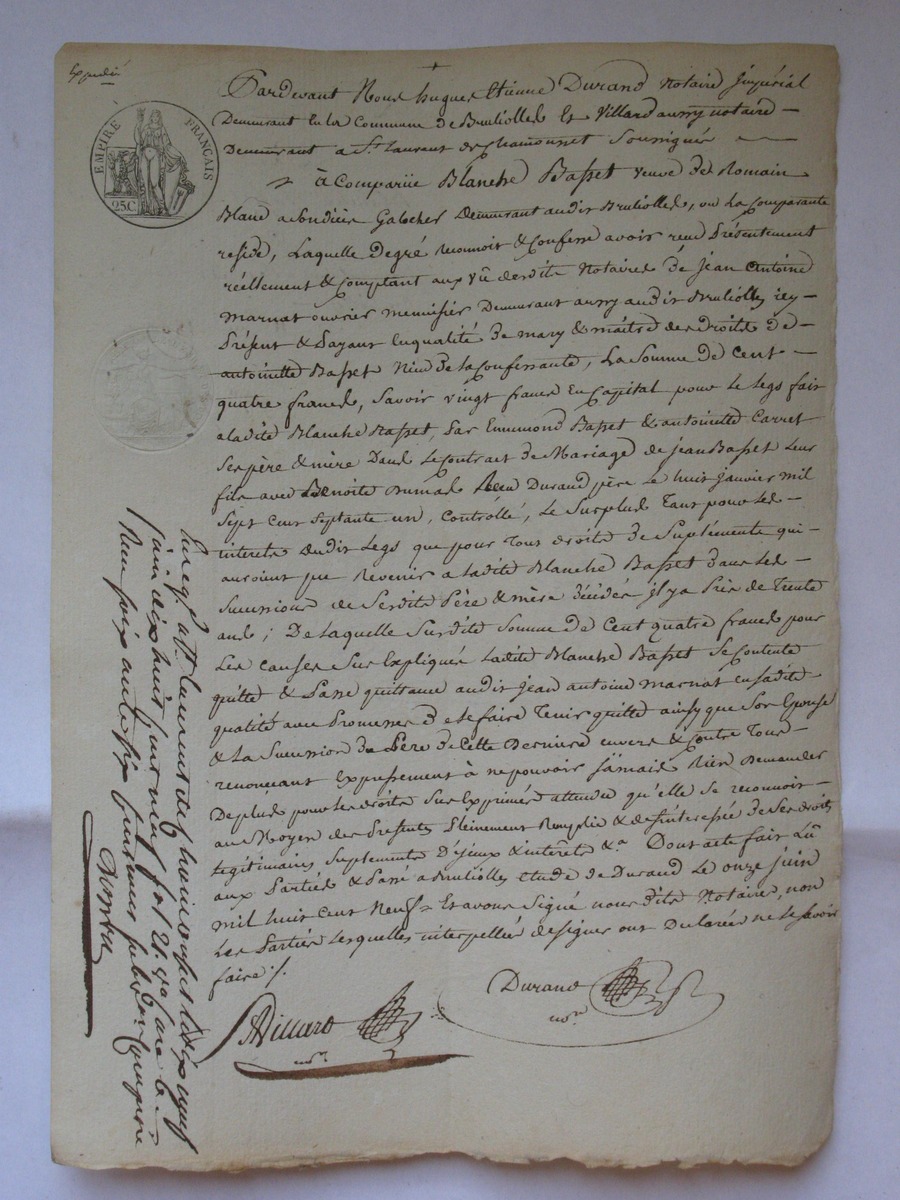 Expedié
EMPIRE FRANÇAIS
25C
Pardevant Nous hugues Etienne Durand Notaire Impérial
Demeurant en la Commune de Brulioles Et Villard aussy notaire
Demeurant a St. Laurent de chamousset Soussignés
à Comparüe Blanche Basset veuve de Romain
Blanc Galocher Demeurant audit Brulioles, ou La Comparante
reside, Laquelle Degré reconnoit & Confesse avoir reçu Présentement
réellement & Comptant aux vû desdits Notaires de Jean Antoine
marnat ouvrier menuisier Demeurant aussy audit Brulioles icy
Présent & Payant en qualité de mary & maitre des droits de
antoinette Basset Niece de la Confessante, La Somme de Cent
quatre francs, Savoir vingt francs En Capital pour Le Legs fait
a ladite Blanche Basset, Par Ennemond Basset & antoinette Carret
Ses père & mère Dans Le Contract de Mariage de jean Basset Leur
fils avec Benoite Dumas Reçu Durand père Le huit janvier mil
Sept Cent Septante un, Controllé, Le Surplus Tant pour Les
interets dudit Legs que pour Tous droits de Supléments qui
auroient pu Revenir a ladite Blanche Basset Dans Les
Successions de Sesdits Père & mère décédés il y a Près de Trente
ans; De Laquelle Susdite Somme de Cent quatre francs pour
Les causes Sus Expliquées Ladite Blanche Basset Se Contente
quitte & Passe quittance audit jean antoine marnat en sadite
qualité avec Promesses de le faire Tenir quitte ainsy que Son Epouse
& La Succession du Père de Cette Derniere envers & Contre Tous
renonceant Expressement à ne pouvoir jamais Rien Demander
De plus pour Les droits Sus Exprimés attendu qu'elle Se reconnoit
au Moyen des Presentes Pleinement Remplie & desinteressée de Ses droits
Legitimaires Suplements D'iceux & interets &a. Dont acte fait Lû
aux Parties & Passé a Brulioles etude de Durand Le onze juin
mil huit Cent Neuf Et avons Signé nous dits Notaires, non
Les Parties Lesquelles interpellées de signer ont Declarées ne le Savoir
faire /.
Durand
nore.
Villard
nore.
Enregé. a St. Laurent de Chamousset le dix neuf
juin dix huit cent neuf fol 21 vo.
Reçu